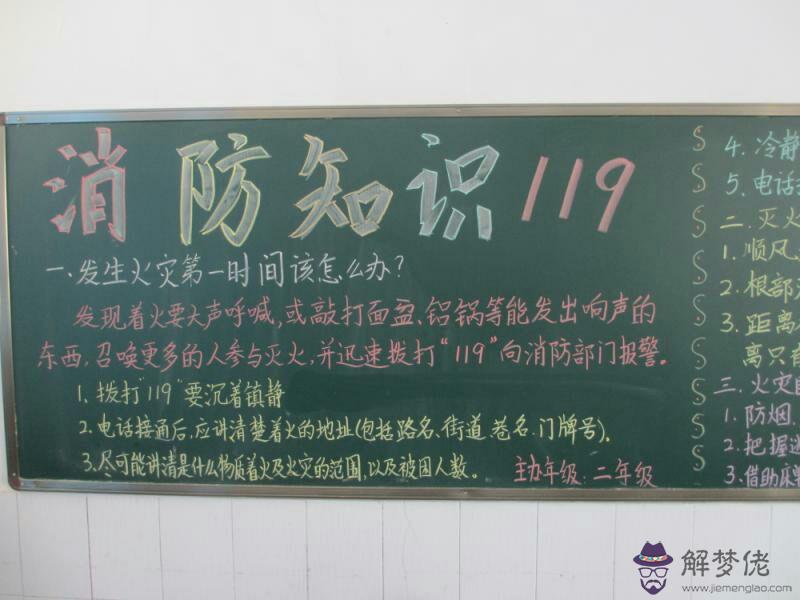 消防知识119
一.发生火灾第一时间该怎么办?
发现着火要大声呼喊,或敲打面盆、铝锅等能发出响声的
东西,召唤更多的人参与灭火,并迅速拨打“119”向消防部门报警。
1.拨打“119”要沉着镇静
2.电话接通后,应讲清楚着火的地址(包括路名、街道、巷名、门牌号).
3.尽可能讲清是什么物质着火及火灾的范围,以及被困人数。
主办年级:二年级
4.冷静
5.电话
二.灭火
1.顺风
2.根部
3.距离
离只有
三.火灾
1.防烟.
2.把握
3.借助床
解梦佬
www.jiemenglao.com